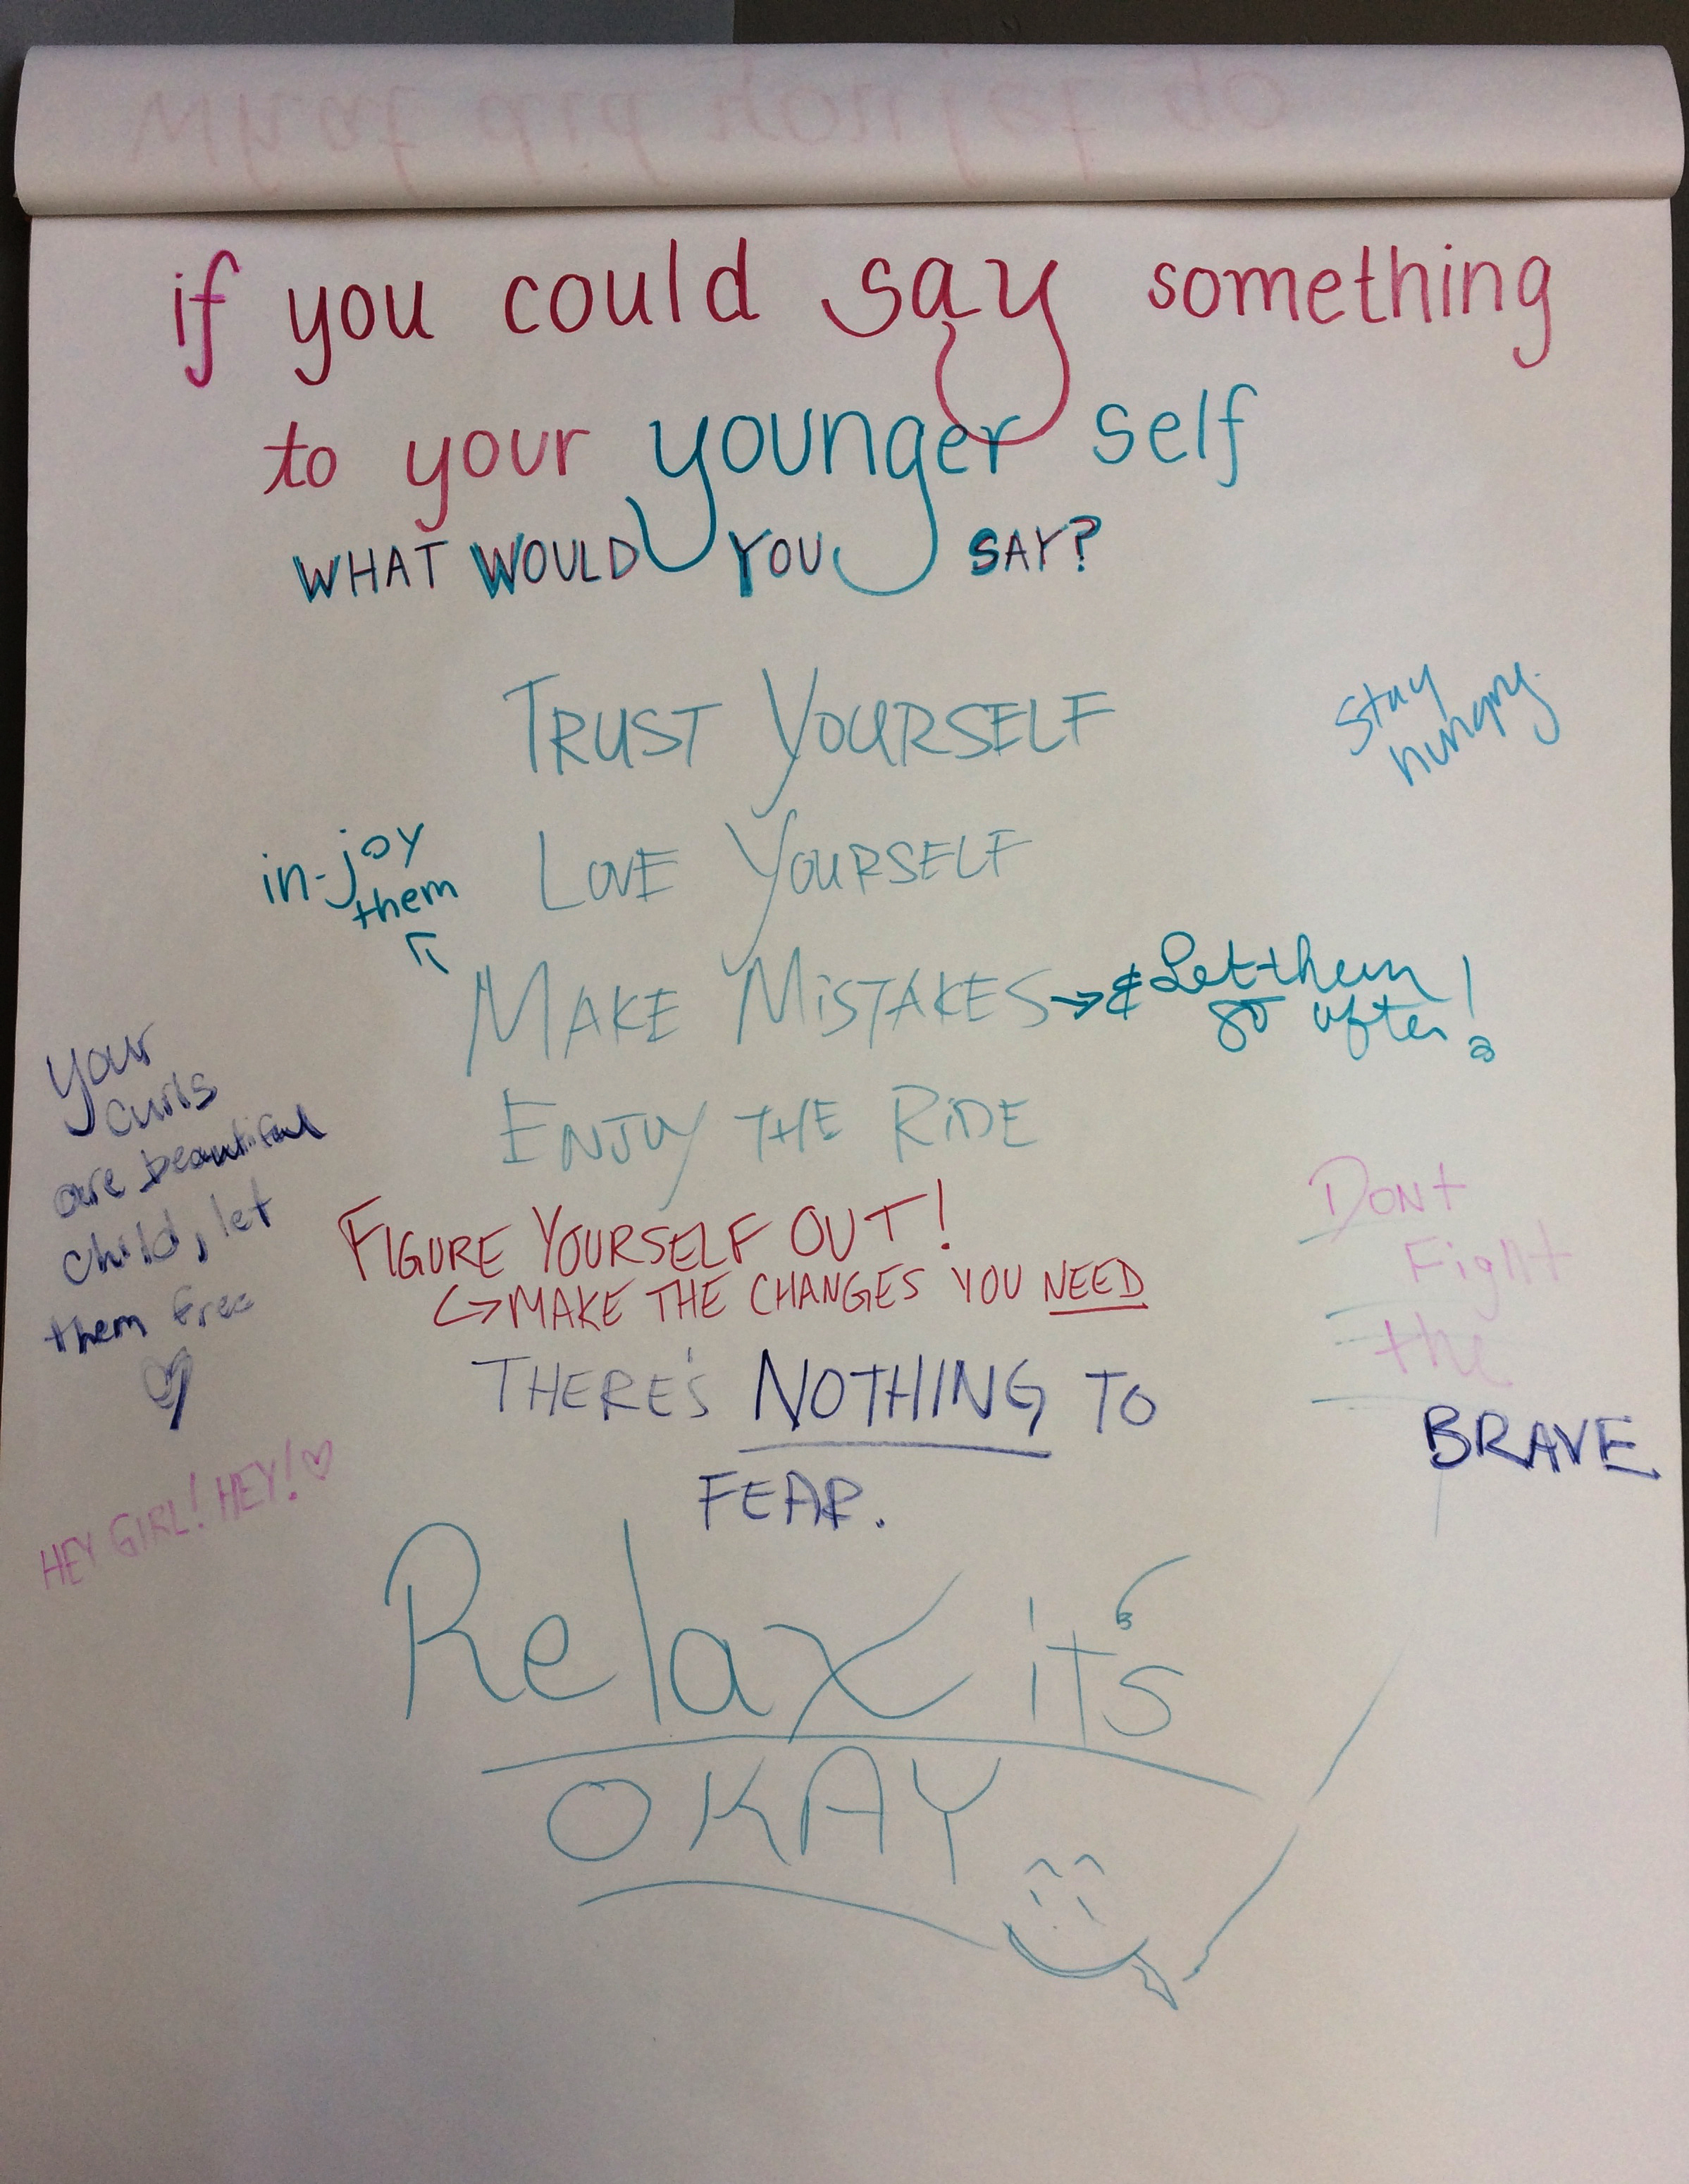 What did younger do
if you could say something
to your younger self
WHAT WOULD YOU SAY?
TRUST YOURSELF
Stay
hungry.
in-joy
them
LOVE YOURSELF
MAKE MISTAKES → & Let them
go after!
ENJOY THE RIDE
your
curls
are beautiful
child, let
them free
FIGURE YOURSELF OUT!
↪ MAKE THE CHANGES YOU NEED
DONT
Fight
the
BRAVE
THERE'S NOTHING TO
FEAR.
HEY GIRL! HEY! ♡
Relax it's
OKAY